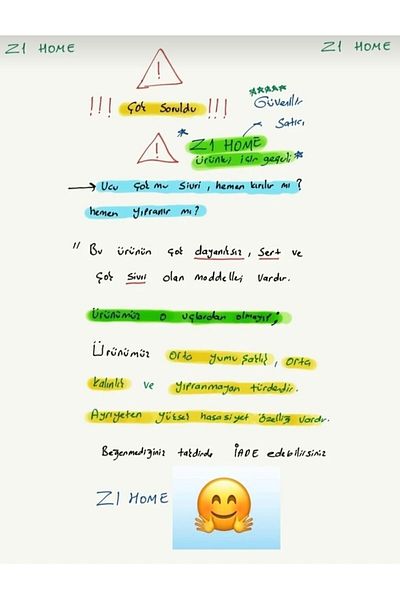 Z1 HOME
Z1 HOME
!!! Çok Soruldu !!!
Güvenilir
Satıcı
Z1 HOME
ürünleri için geçerli
Ucu çok mu sivri, hemen kırılır mı?
hemen yıpranır mı?
" Bu ürünün çok dayanıksız, sert ve
çok sivri olan modelleri vardır.
Ürünümüz o uçlardan olmayıp;
Ürünümüz orta yumuşaklık, orta
kalınlık ve yıpranmayan türdendir.
Ayrıyeten yüksek hassasiyet özelliği vardır.
Beğenmediğiniz takdirde İADE edebilirsiniz
Z1 HOME